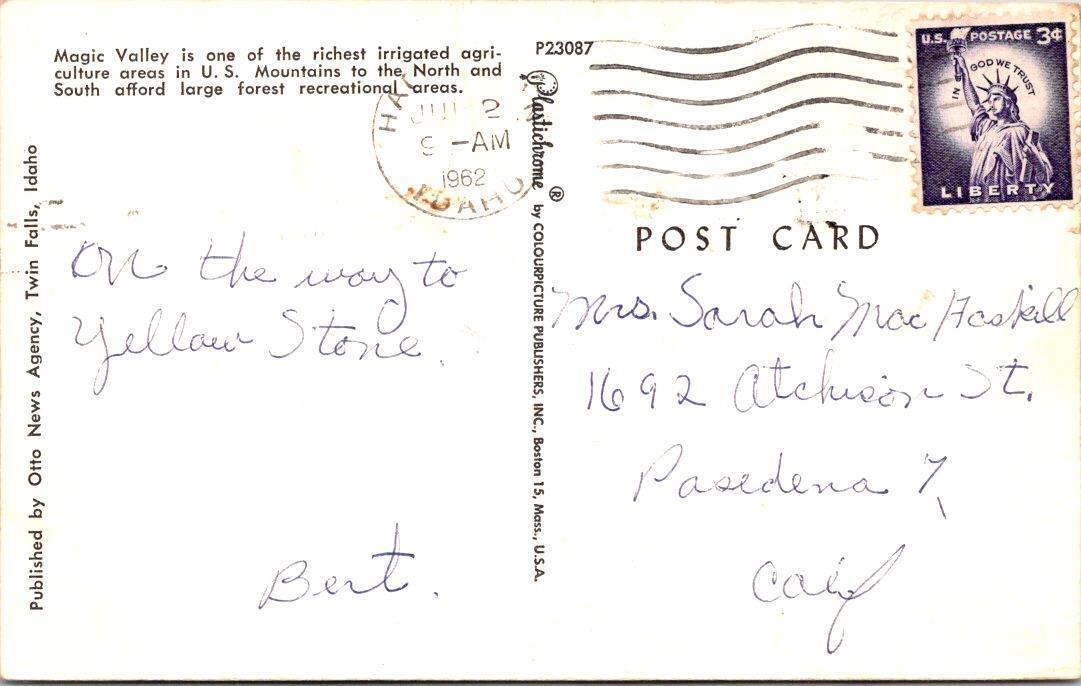 Magic Valley is one of the richest irrigated agri-
culture areas in U. S. Mountains to the North and
South afford large forest recreational areas.
P23087
9 -AM
1962
IDAHO
U.S. POSTAGE 3¢
IN GOD WE TRUST
LIBERTY
Published by Otto News Agency, Twin Falls, Idaho
Plastichrome ® by COLOURPICTURE PUBLISHERS, INC., Boston 15, Mass., U.S.A.
POST CARD
On the way to
Yellow Stone.
Bert.
Mrs. Sarah MacHaskill
1692 Atchison St.
Pasedena 7,
Calif